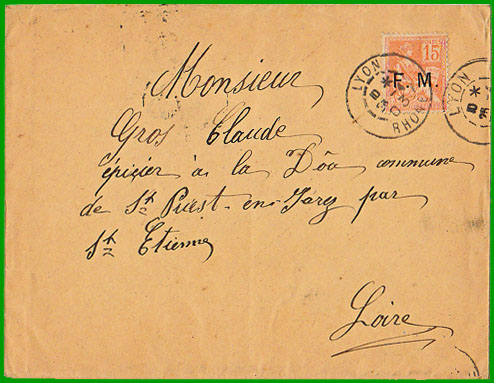 15
F. M.
LYON
RHONE
LYON
Monsieur
Gros Claude
épicier à la Dôa commune
de St Priest-en-Jarez par
St Etienne
Loire